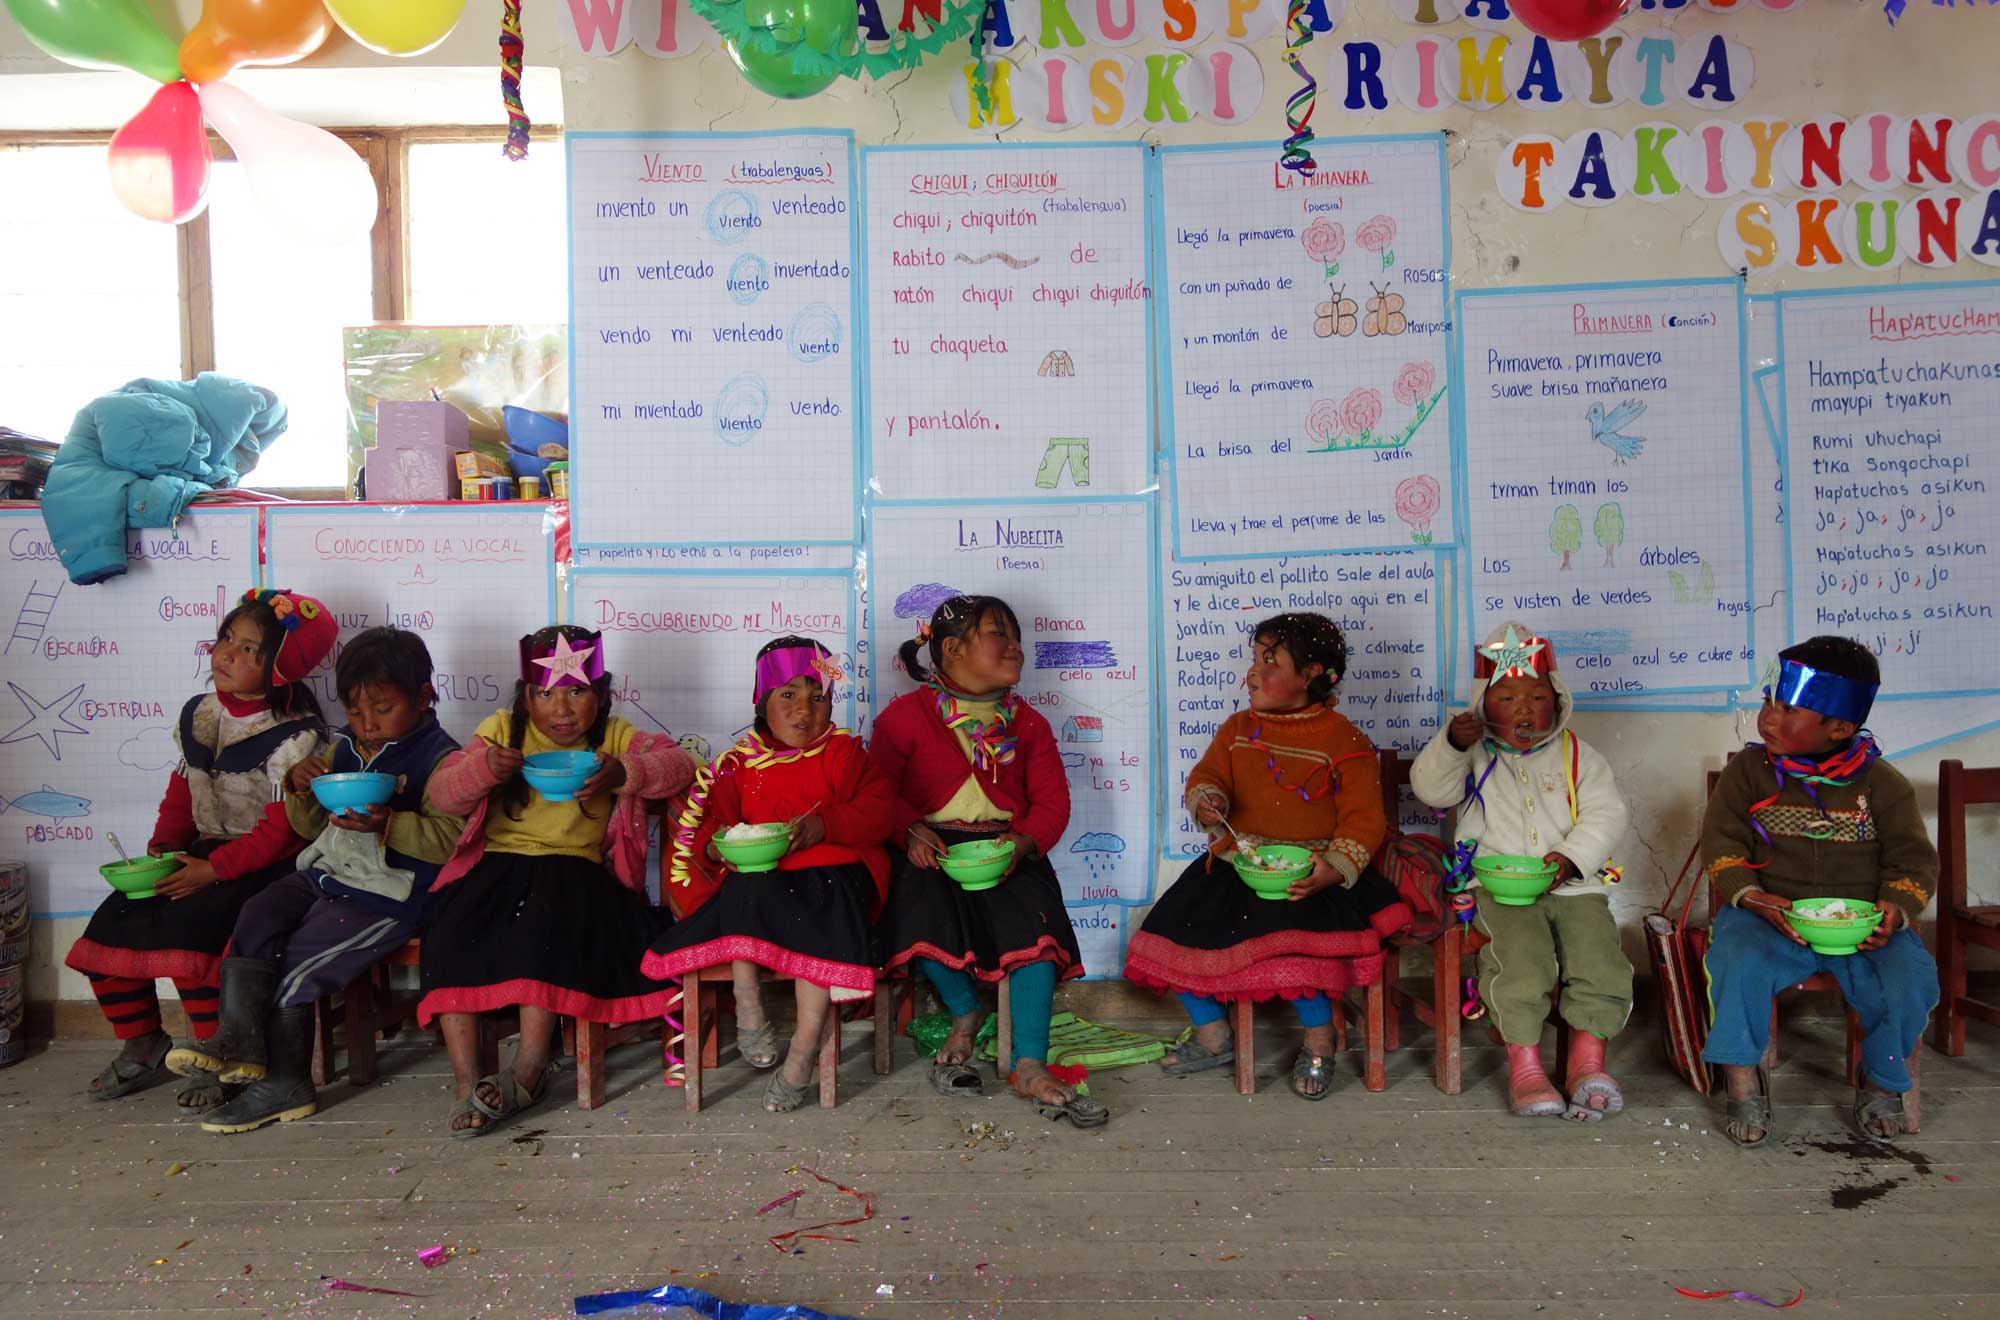 MISKI RIMAYTA
TAKIYNINC
SKUNA
VIENTO (trabalenguas)
invento un viento venteado
un venteado viento inventado
vendo mi venteado viento
mi inventado viento vendo.
CHIQUI; CHIQUITÓN
(trabalengua)
chiqui; chiquitón
Rabito de
ratón chiqui chiqui chiquitón
tu chaqueta
y pantalón.
LA PRIMAVERA
(poesia)
Llegó la primavera
con un puñado de ROSAS
y un montón de Mariposas
Llegó la primavera
La brisa del jardín
Lleva y trae el perfume de las
PRIMAVERA (Canción)
Primavera, primavera
suave brisa mañanera
trinan trinan los
Los árboles
se visten de verdes hojas
cielo azul se cubre de
azules.
HAP'ATUCHAM
Hamp'atuchakunas
mayupi tiyakun
Rumi uhuchapi
t'ika sonqochapi
Hap'atuchas asikun
ja, ja, ja, ja
Hap'atuchas asikun
jo, jo, jo, jo
Hap'atuchas asikun
ji, ji
LA VOCAL E
ESCOBA
ESCALERA
ESTRELLA
PESCADO
CONOCIENDO LA VOCAL
A
LUZ LIBIA
el papelito y lo echó a la papelera!
DESCUBRIENDO MI MASCOTA
LA NUBECITA
(Poesia)
Blanca
cielo azul
pueblo
ya te
Las
lluvia
Su amiguito el pollito sale del aula
y le dice_ven Rodolfo aqui en el
jardín
Luego el cálmate
Rodolfo, vamos a
cantar y muy divertido!
Rodolfo aún así
no
JOSÉ
LUIS